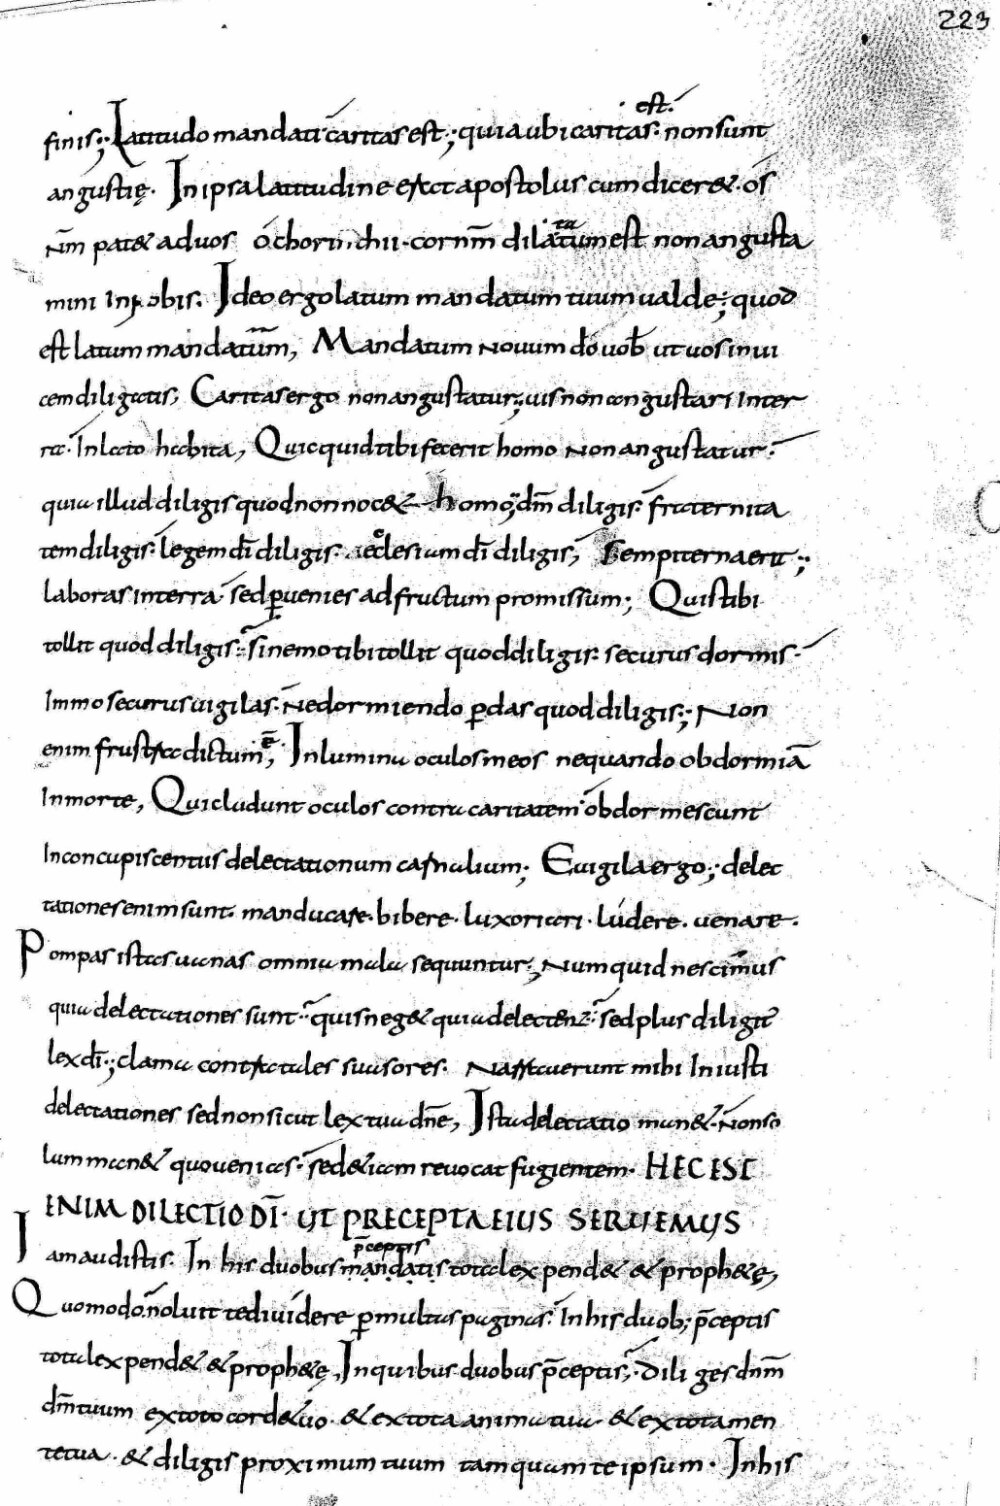 223
finis; Latitudo mandati caritas est; quia ubi caritas est. non sunt
angustię. In ipsa latitudine erat apostolus cum diceret. ós
nr̄m patet ad uos ó chorinthii. cor nr̄m dilatatum est non angusta
mini in nobis. Ideo ergo latum mandatum tuum ualde; quod
est latum mandatum, Mandatum nouum do uob ut uos inui
cem diligatis, Caritas ergo non angustatur; uis non congustari in ter
ra. In lato habita, Quicquid tibi fecerit homo non angustatur.
quia illud diligis quod non nocet homo; dm̄ diligis. fraterni ta
tem diligis. legem dī diligis. ecclesiam dī diligis, Sempiterna erit;
laboras in terra sed puenies ad fructum promissum; Quis tibi
tollit quod diligis. si nemo tibi tollit quod diligis. securus dormis.
Immo securus uigilas. Ne dormiendo pdas quod diligis; Non
enim frustra dictum ē, Inlumina oculos meos nequando obdormiā
In morte, Qui cludunt oculos contra caritatem obdormescunt
In concupiscentiis delectationum carnalium; Euigila ergo; delec
tationes enim sunt. manducare. bibere. luxoriari. lúdere. uenare.
Pompas istas uanas omnia mala sequuntur; Numquid nescimus
quia delectationes sunt. quis neget quia delectent. sed plus diligit
lex dī; clama contra tales suasores. Narrauerunt mihi Iniusti
delectationes sed non sicut lex tua dn̄e, Ista delectatio manet. Non so
lum manet quo uenias. sed etiam reuocat fugientem. HEC EST
ENIM DILECTIO DĪ. UT PRECEPTA EIUS SERUEMUS
Iam audistis. In his duobus mandatis p̄ceptis tota lex pendet et prophetę,
Quomodo noluit te diuidere p multas paginas. In his duob; p̄ceptis
tota lex pendet et prophetę, In quibus duobus p̄ceptis; Diliges dn̄m
dm̄ tuum ex toto corde tuo. et ex tota anima tua. et ex tota men
te tua. et diligis proximum tuum tamquam te ipsum. In his